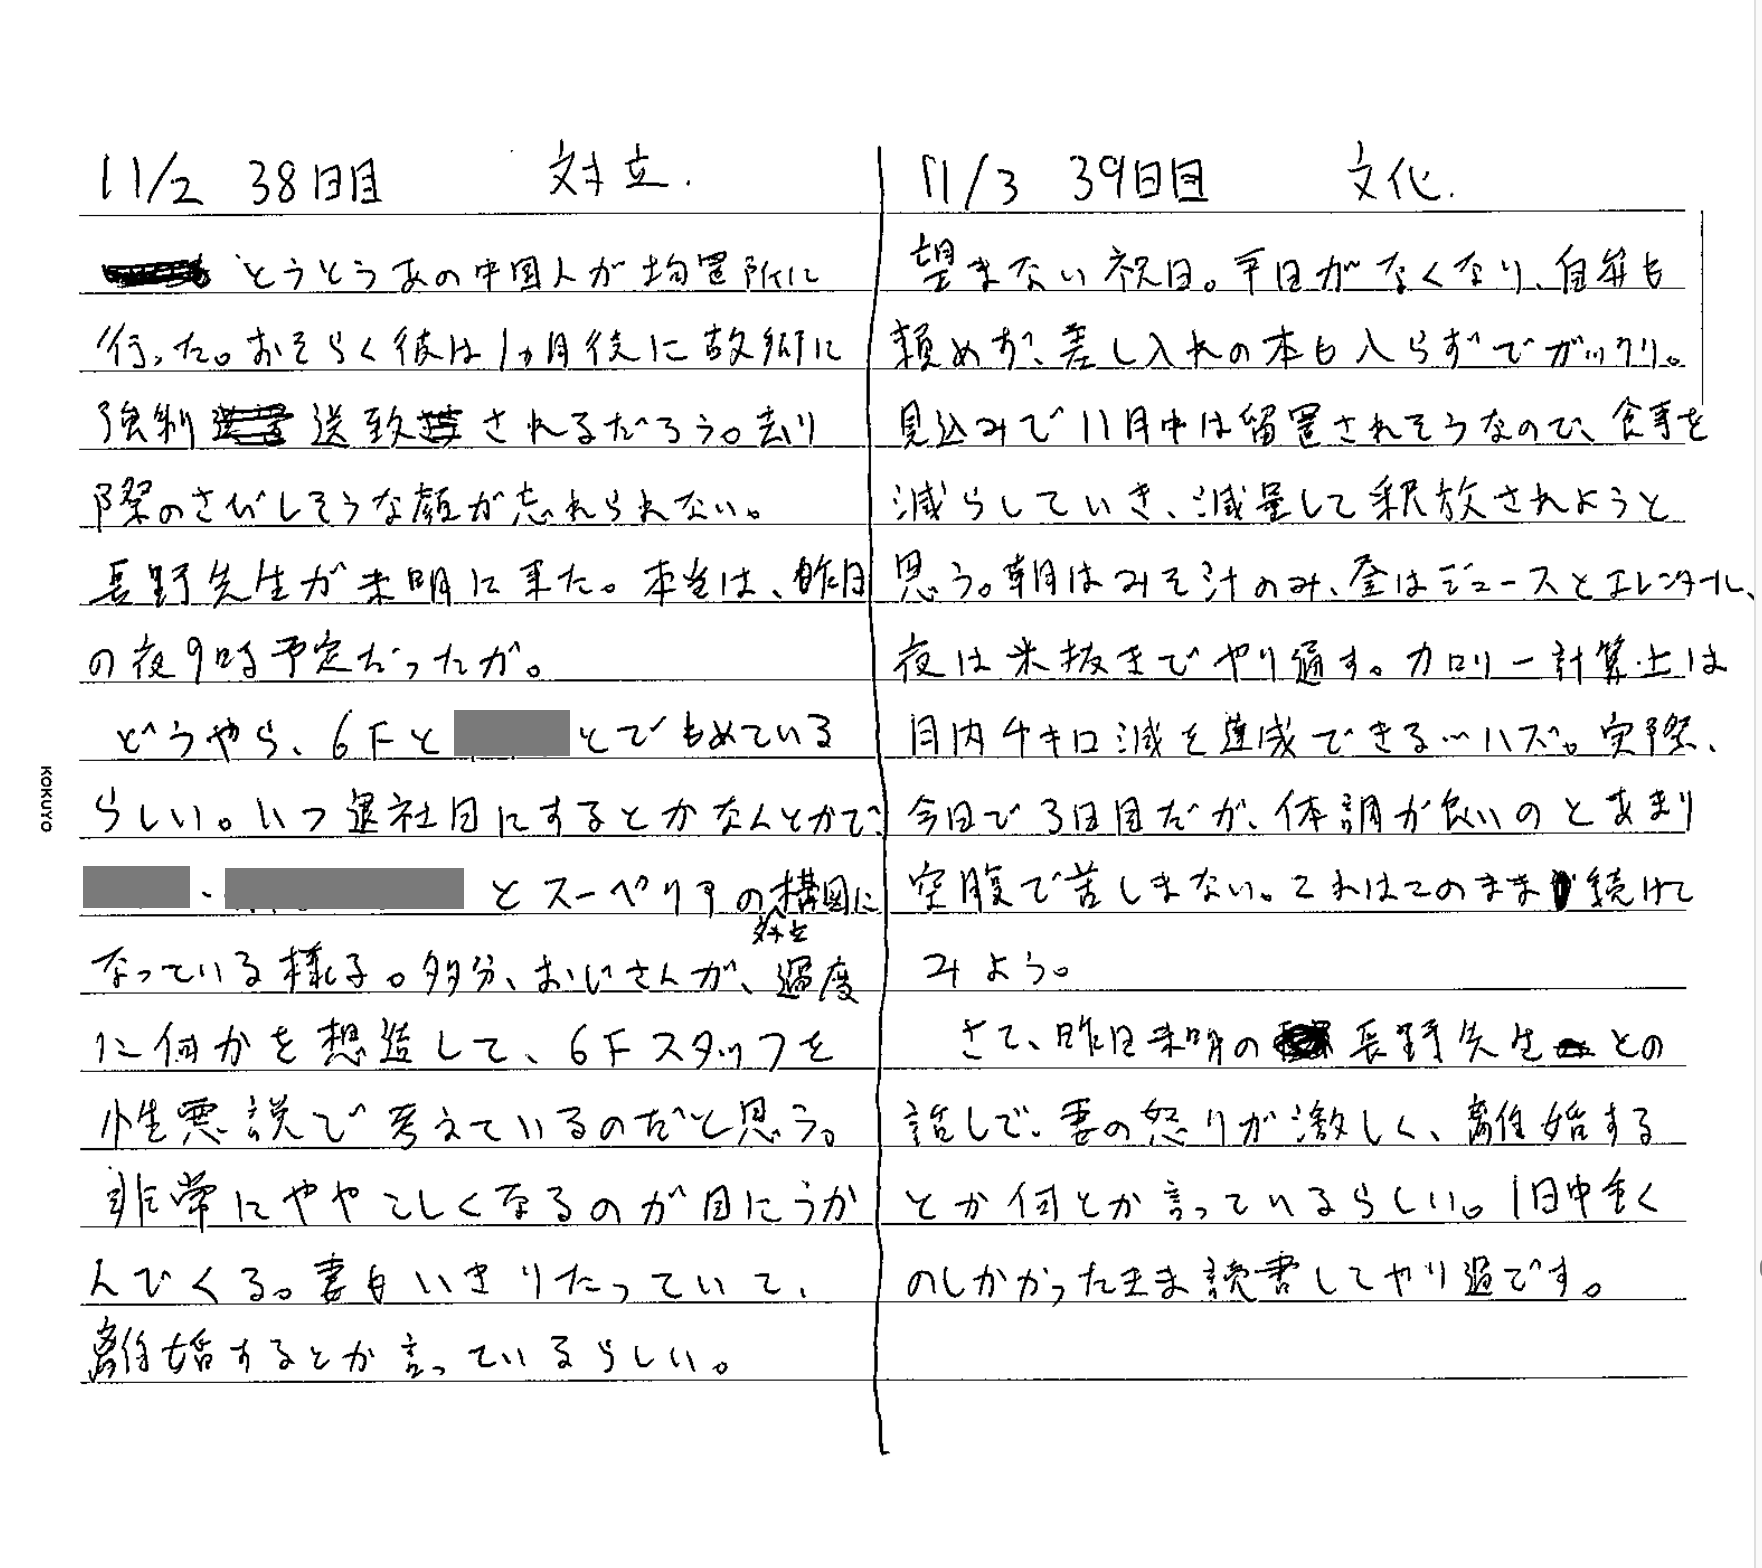 11/2 38日目 対立.
とうとうあの中国人が拘置所に
行った。おそらく彼は1ヵ月後に故郷に
強制送致されるだろう。去り
際のさびしそうな顔が忘れられない。
長野先生が未明に来た。本当は、昨日
の夜9時予定だったが。
どうやら、6Fと とでもめている
らしい。いつ退社日にするとかなんとかで。
・ とスーペリアの対立構図に
なっている様子。多分、おじさんが、過度
に何かを想造して、6Fスタッフを
性悪説で考えているのだと思う。
非常にややこしくなるのが目にうか
んでくる。妻もいきりたっていて、
離婚するとか言っているらしい。
11/3 39日目 文化.
望まない祝日。平日がなくなり、自弁も
頼めず、差し入れの本も入らずでガックリ。
見込みで11月中は留置されそうなので、食事を
減らしていき、減量して釈放されようと
思う。朝はみそ汁のみ、昼はジュースとエレンタール、
夜は米抜きでやり通す。カロリー計算上は
月内4キロ減を達成できる…ハズ。実際、
今日で3日目だが、体調が良いのとあまり
空腹で苦しまない。これはこのまま続けて
みよう。
さて、昨日未明の長野先生との
話しで、妻の怒りが激しく、離婚する
とか何とか言っているらしい。1日中重く
のしかかったまま読書してやり過です。
KOKUYO